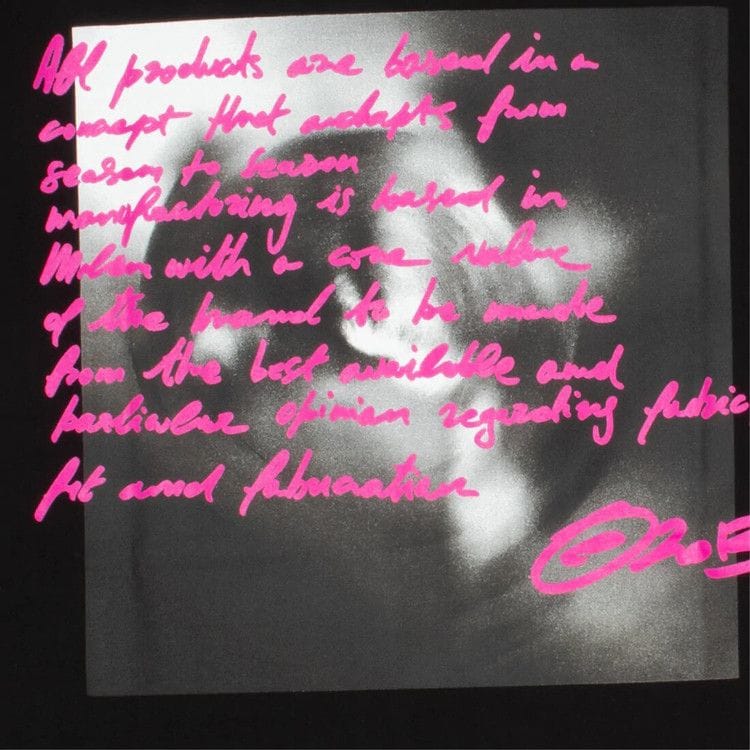 All products are based in a
concept that adapts from
season to season
manufactoring is based in
Milan with a core value
of the brand to be made
from the best available and
particular opinion regarding fabric
fit and fabrication